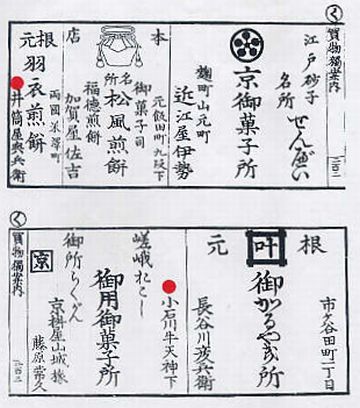 く
買物獨案内
二百二
江戸砂子
名所
せんべい
京御菓子所
麹町山元町
近江屋伊勢
本
店
元飯田町九段下
御菓子司
名
所
松風煎餅
福徳煎餅
加賀屋佐吉
根
元
羽衣煎餅
両國米澤町
井筒屋與兵衛
く
買物獨案内
二百三
根
元
叶
市ヶ谷田町一丁目
御かるやき所
長谷川茂兵衛
小石川牛天神下
嵯峨おこし
御用御菓子所
御所らくがん
京桝屋山城掾
藤原常久
京